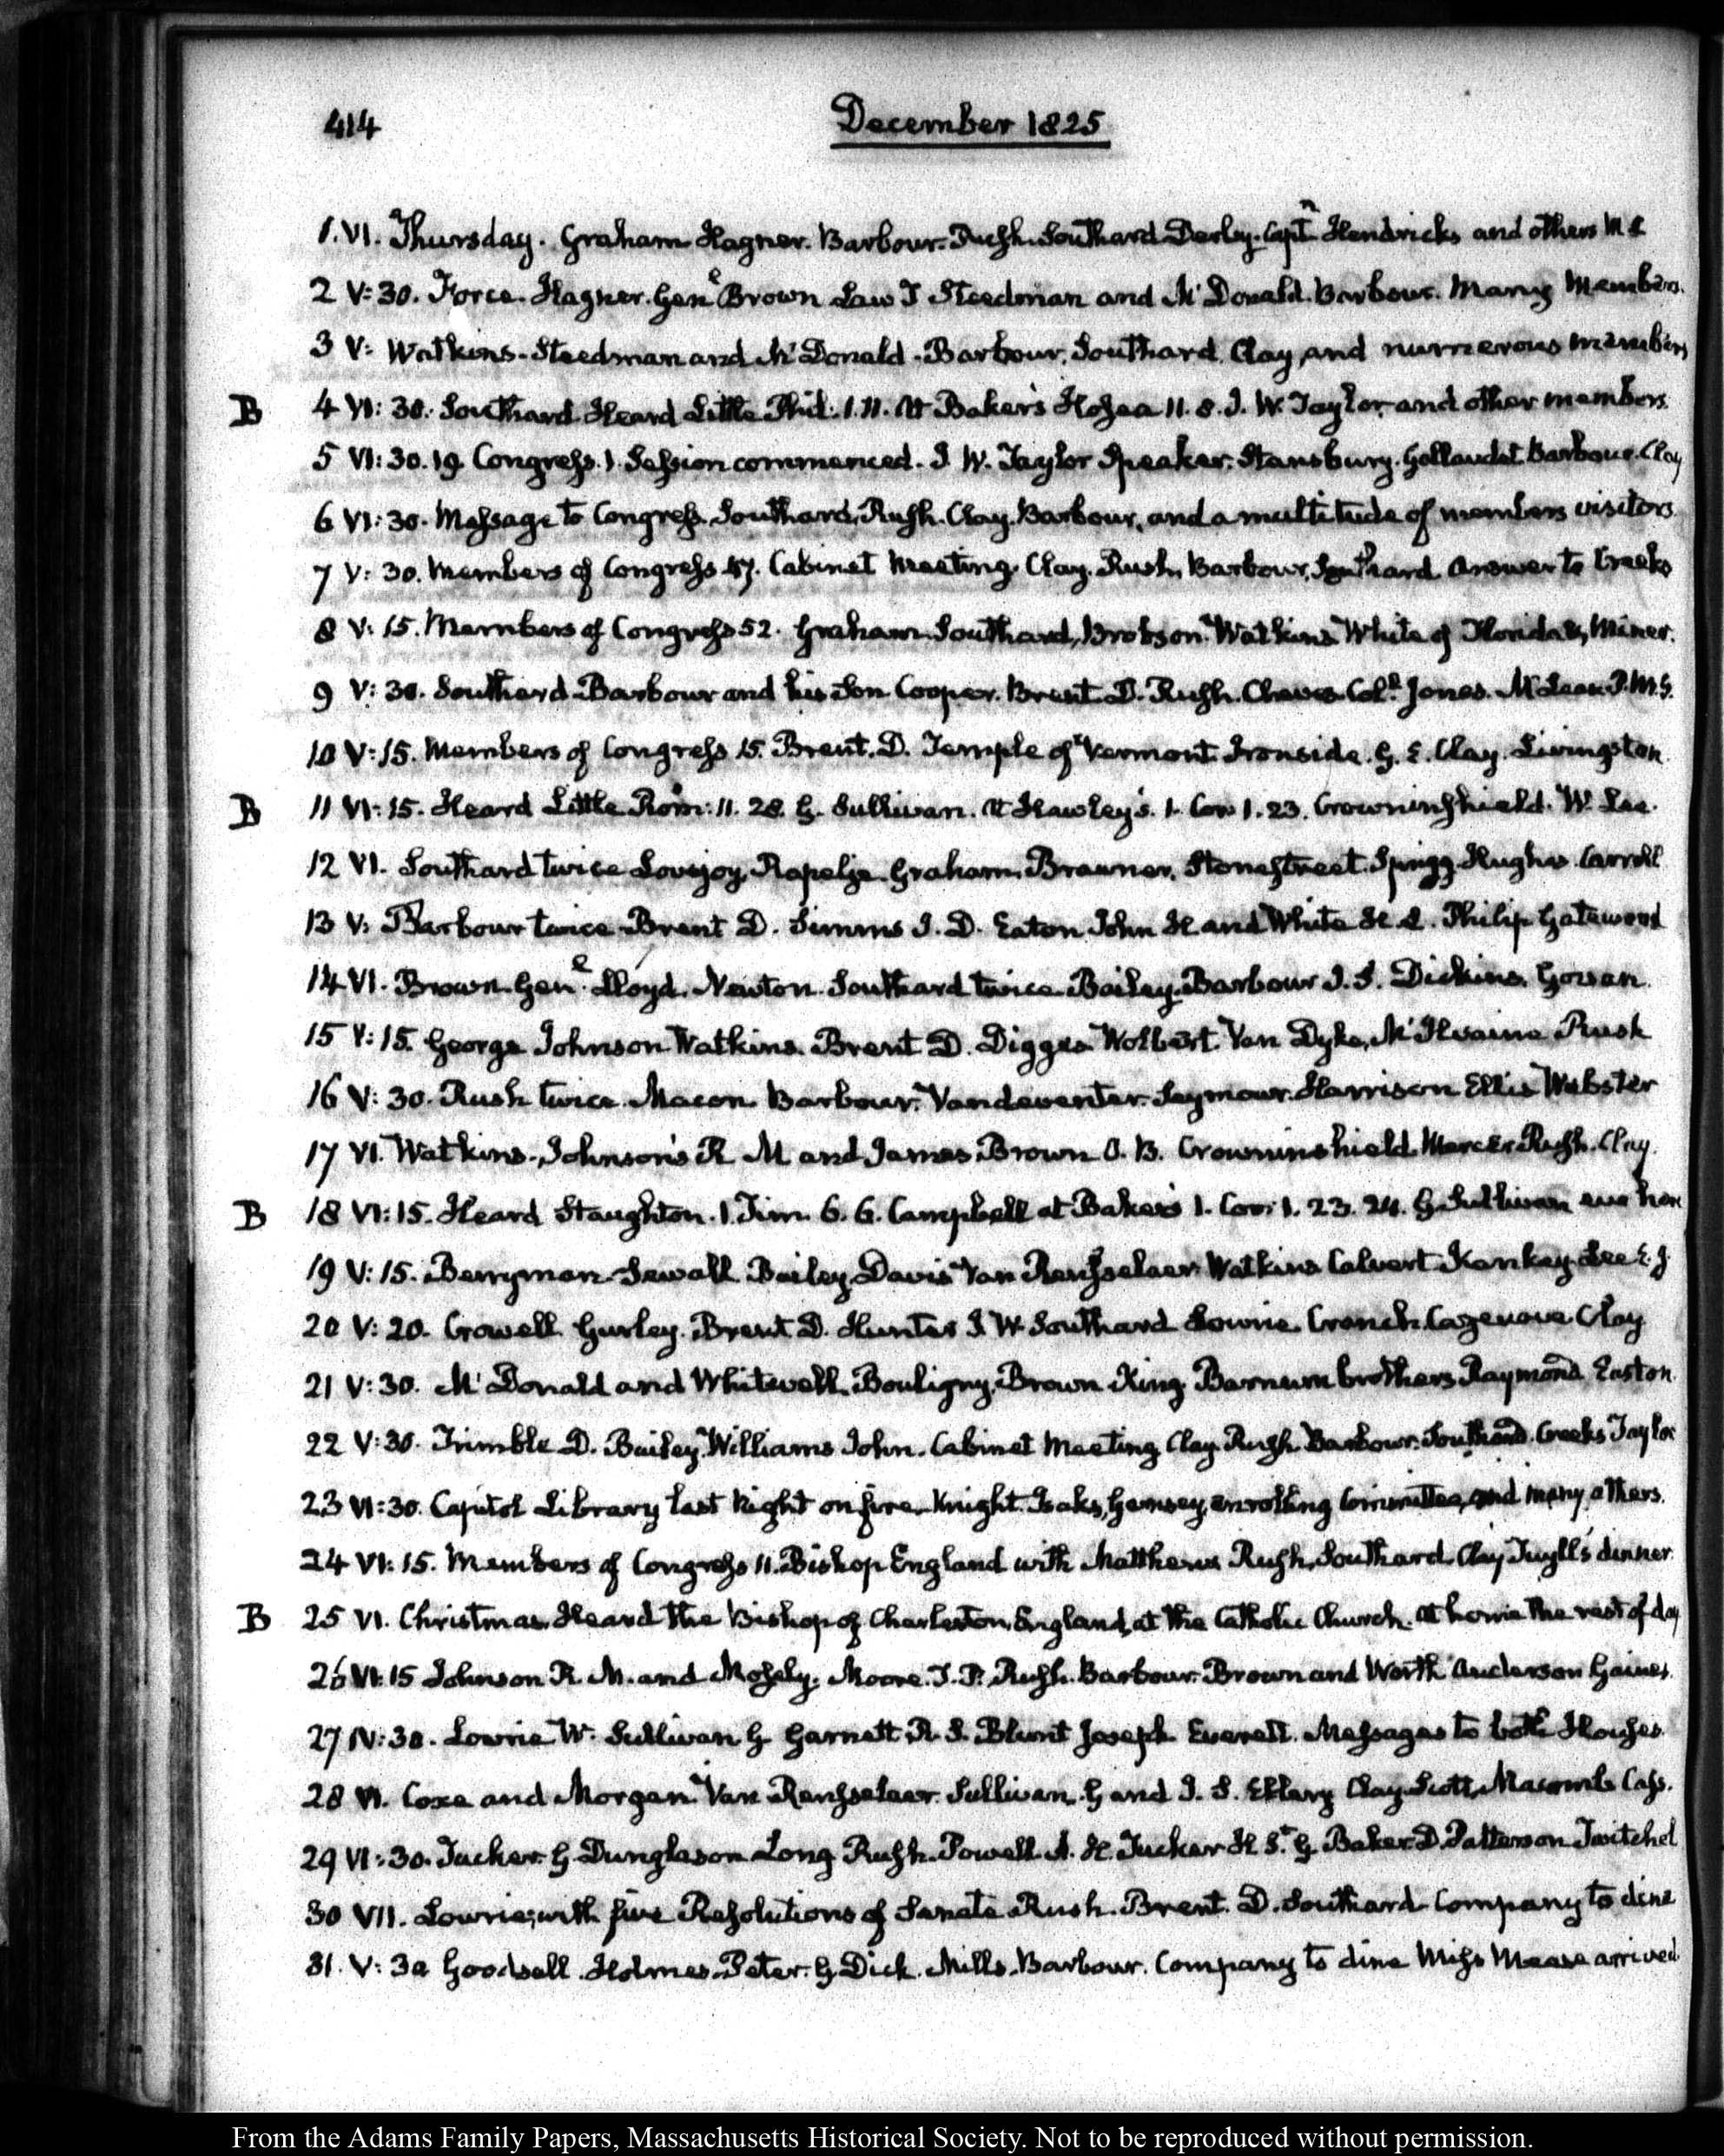 414
December 1825
1. VI. Thursday. Graham Hagner. Barbour. Rush. Southard Derby. Capt.n Hendricks and others M C
2 V:30. Force. Hagner. Gen.l Brown Law T Steedman and McDonald. Barbour. Many Members.
3 V: Watkins. Steedman and McDonald. Barbour. Southard. Clay, and numerous members
B 4 VI:30. Southard Heard Little Phil: 1.11. At Baker's Hosea 11.8. J. W. Taylor and other members.
5 VI:30. 19 Congress. 1. Session commenced. J. W. Taylor Speaker. Stansbury. Gallaudet Barbour. Clay
6 VI:30. Message to Congress. Southard, Rush. Clay. Barbour, and a multitude of members visitors
7 V:30. Members of Congress 47. Cabinet Meeting. Clay. Rush, Barbour, Southard. Answer to Creeks
8 V:15. Members of Congress 52. Graham. Southard, Brobson. Watkins. White of Florida, Miner.
9 V:30. Southard. Barbour and his Son Cooper. Brent. D. Rush. Chaves Col.l Jones. McLean P.M.G.
10 V:15. Members of Congress 15. Brent. D. Temple of Vermont. Ironside. G. E. Clay. Livingston
B 11 VI:15. Heard Little Rom: 11.28. G. Sullivan. At Hawley's. 1. Cor 1.23. Crowninshield. W. Lee.
12 VI. Southard twice Lovejoy, Rapelje. Graham. Brawner. Stonestreet. Sprigg Hughes Carroll
13 V: Barbour twice Brent D. Simms J. D. Eaton John H and White H. L. Philip Gatewood
14 VI. Brown. Gen.l Lloyd. Newton. Southard twice Bailey. Barbour J. S. Dickins, Gowan.
15 V:15. George Johnson Watkins. Brent D. Digges Wolbert. Van Dyke, McIlvaine Rush
16 V:30. Rush twice. Macon. Barbour. Vandeventer. Seymour. Harrison Ellis Webster
17 VI. Watkins. Johnson's R M and James Brown O. B. Crowninshield Mercer Rush. Clay.
B 18 VI:15. Heard Staughton. 1. Tim. 6.6. Campbell at Baker's 1. Cor: 1.23.24. G Sullivan
19 V:15. Berryman Sewall Bailey Davis Van Rensselaer. Watkins Calvert Kankey. Lee E. J
20 V:20. Crowell Gurley. Brent D. Hunter J. W. Southard Lowrie. Cranch. Cazenove Clay
21 V:30. McDonald and Whitwell. Bouligny. Brown King. Barnum brothers Raymond Easton
22 V:30. Trimble D. Bailey. Williams John. Cabinet Meeting Clay. Rush. Barbour. Southard. Creeks Taylor
23 VI:30. Capitol Library last Night on fire. Knight. Isaks, Garnsey, enrolling Committee, and many others.
24 VI:15. Members of Congress 11. Bishop England with Matthews Rush, Southard. Clay Tuyll's dinner
B 25 VI. Christmas. Heard the Bishop of Charleston, England, at the Catholic Church. at home the rest of day
26 VI:15 Johnson R. M. and Mosely. Moore. T. P. Rush. Barbour. Brown and Worth Anderson Gaines
27 IV:30. Lowrie W. Sullivan G Garnett R. S. Blunt Joseph Everett. Messages to both Houses.
28 VI. Coxe and Morgan. Van Rensselaer. Sullivan. G and J. S. Ellery Clay Scott, Macomb Cass.
29 VI:30. Tucker. G. Dunglason Long Rush. Powell A. H. Tucker H St. G. Baker. D. Patterson Twitchel
30 VII. Lowrie, with five Resolutions of Senate Rush. Brent. D. Southard Company to dine
31. V:30 Goodsell. Holmes. Peter. G. Dick. Mills. Barbour. Company to dine Miss Mease arrived
From the Adams Family Papers, Massachusetts Historical Society. Not to be reproduced without permission.